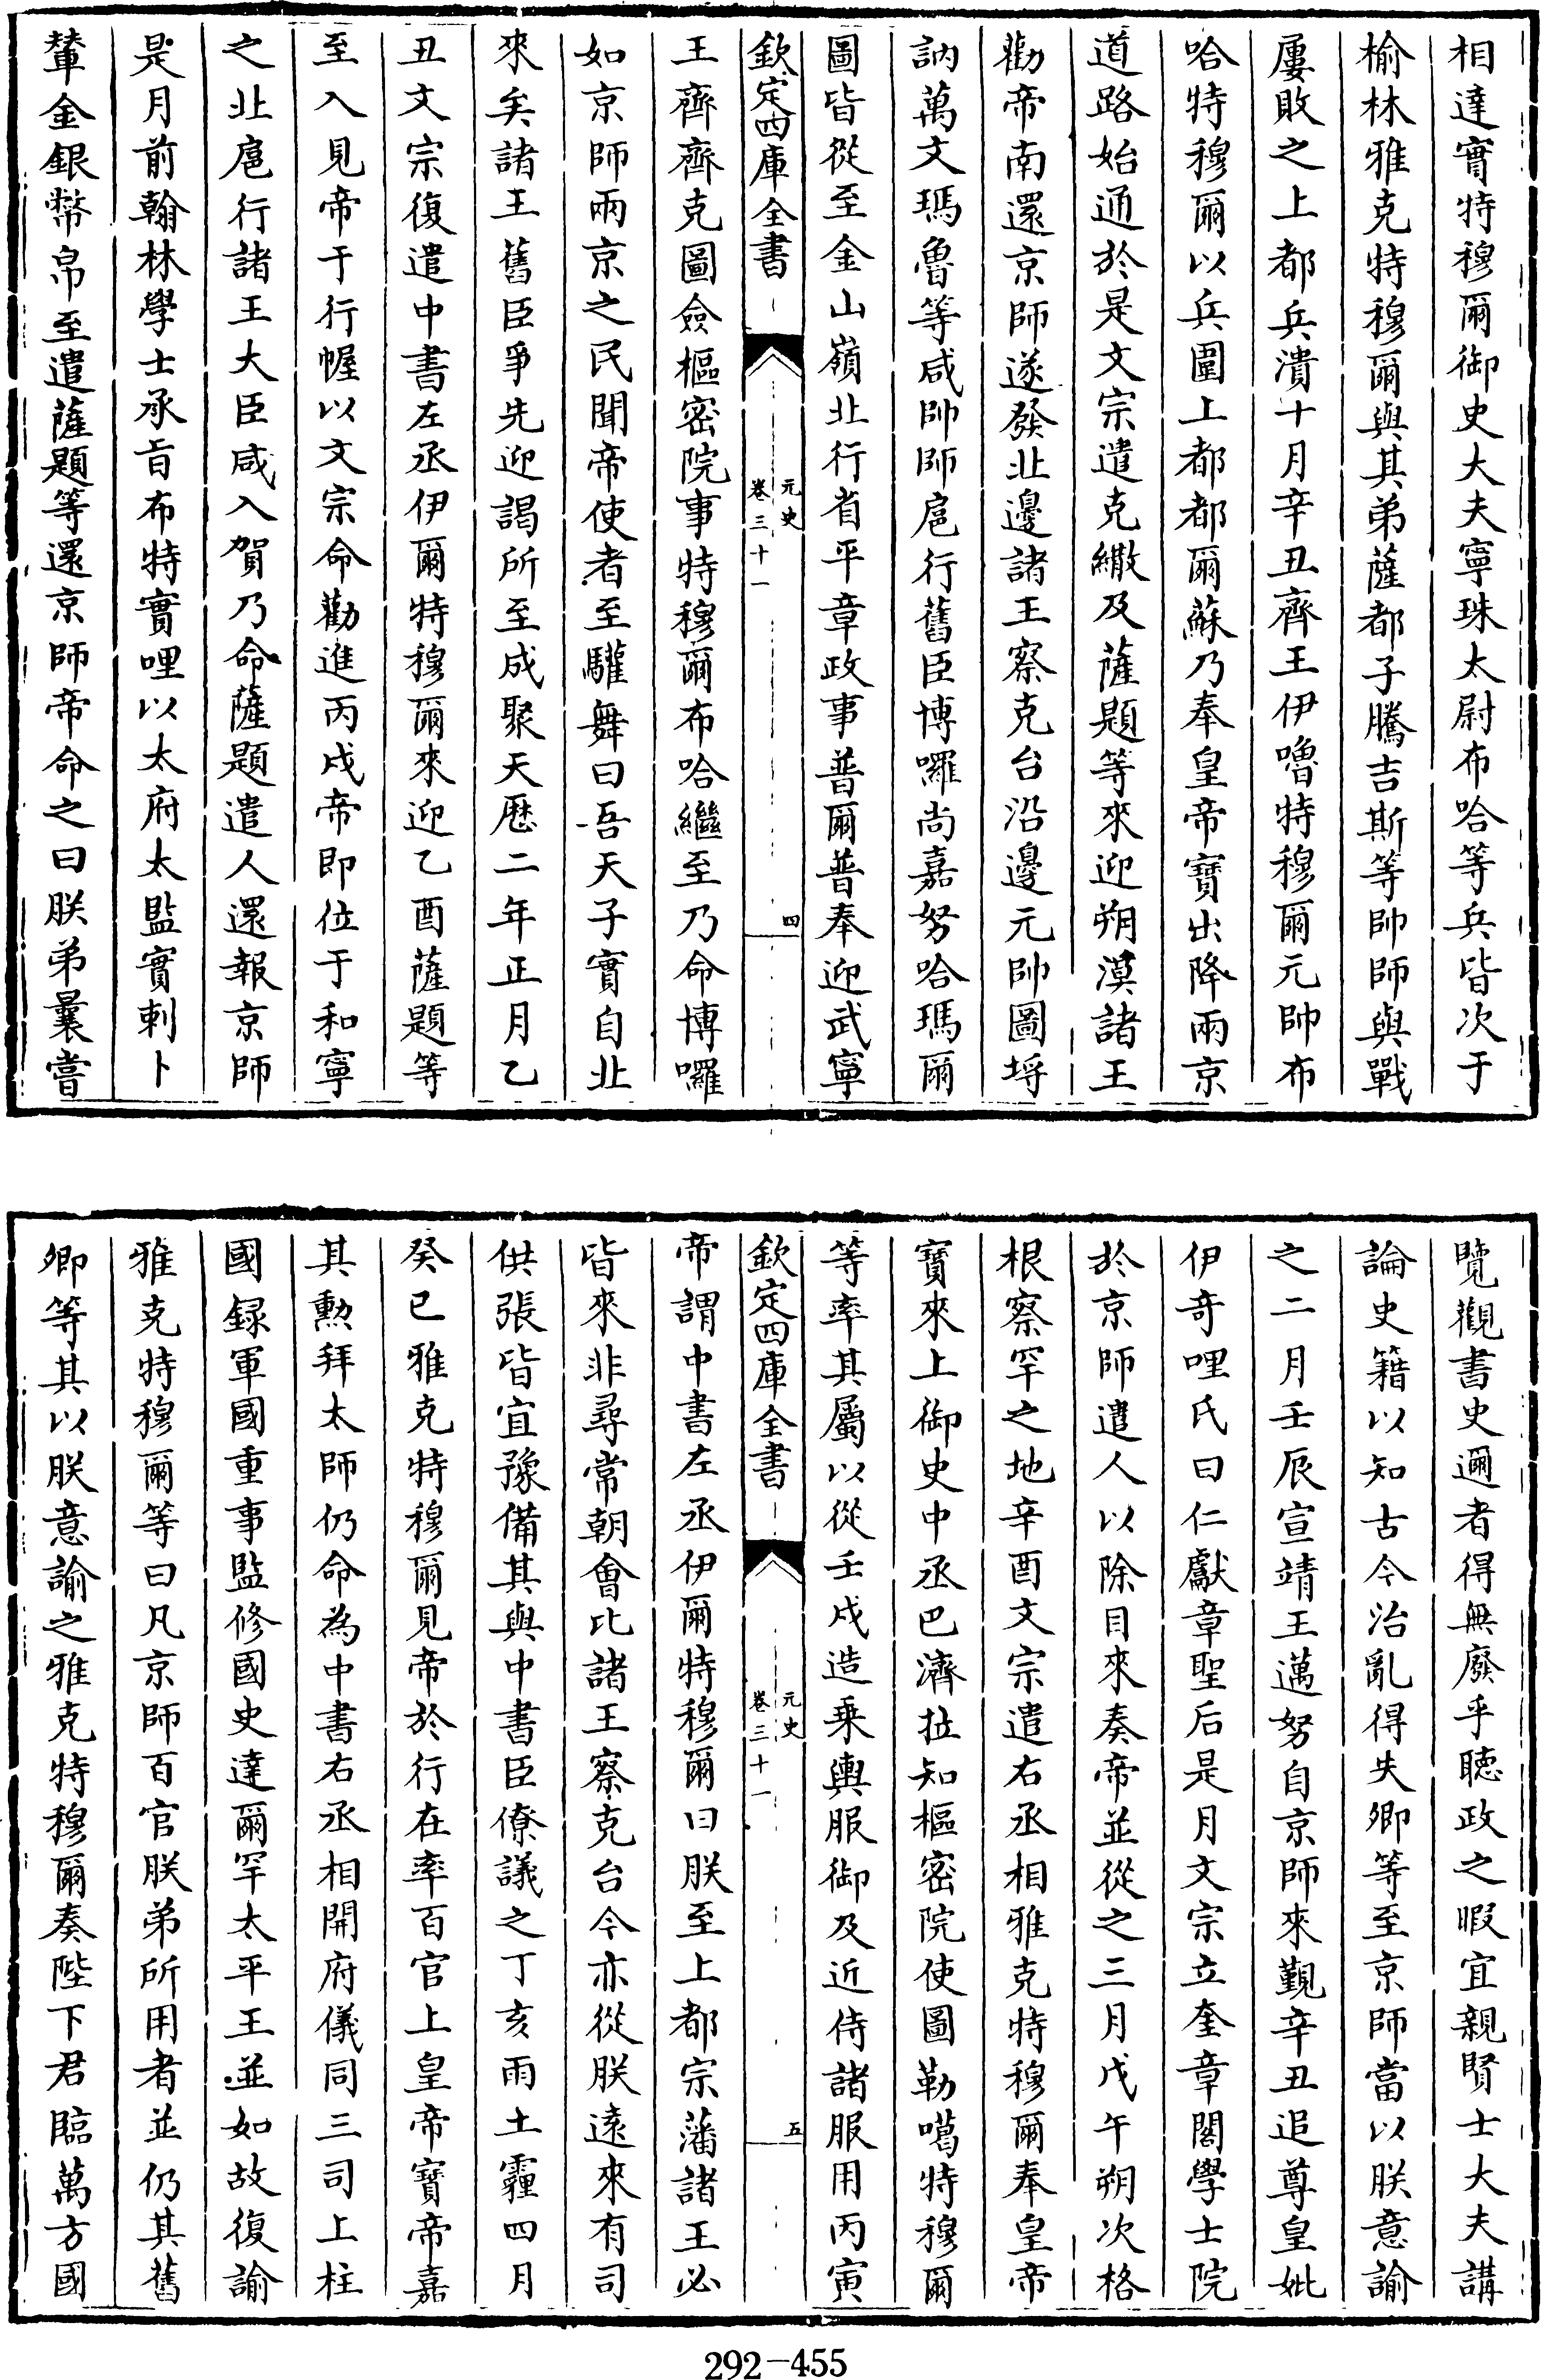 相達實特穆爾御史大夫寧珠太尉布哈等兵皆次于
榆林雅克特穆爾與其弟薩都子騰吉斯等帥師與戰
屢敗之上都兵潰十月辛丑齊王伊嚕特穆爾元帥布
哈特穆爾以兵圍上都都爾蘇乃奉皇帝寶出降兩京
道路始通於是文宗遣克繖及薩題等來迎朔漠諸王
勸帝南還京師遂發北邊諸王察克台沿邊元帥圖埒
訥萬文瑪魯等咸帥師扈行舊臣博囉尚嘉努哈瑪爾
圖皆從至金山嶺北行省平章政事普爾普奉迎武寧
欽定四庫全書
元史
卷三十一
四
王齊齊克圖僉樞密院事特穆爾布哈繼至乃命博囉
如京師兩京之民聞帝使者至驩舞曰吾天子實自北
來矣諸王舊臣爭先迎謁所至成聚天歷二年正月乙
丑文宗復遣中書左丞伊爾特穆爾來迎乙酉薩題等
至入見帝于行幄以文宗命勸進丙戌帝即位于和寧
之北扈行諸王大臣咸入賀乃命薩題遣人還報京師
是月前翰林學士承旨布特實哩以太府太監實剌卜
輦金銀幣帛至遣薩題等還京師帝命之曰朕弟曩嘗
覽觀書史邇者得無廢乎聽政之暇宜親賢士大夫講
論史籍以知古今治亂得失卿等至京師當以朕意諭
之二月壬辰宣靖王邁努自京師來覲辛丑追尊皇妣
伊奇哩氏曰仁獻章聖后是月文宗立奎章閣學士院
於京師遣人以除目來奏帝並從之三月戊午朔次格
根察罕之地辛酉文宗遣右丞相雅克特穆爾奉皇帝
寶來上御史中丞巴濟拉知樞密院使圖勒噶特穆爾
等率其屬以從壬戌造乘輿服御及近侍諸服用丙寅
欽定四庫全書
元史
卷三十一
五
帝謂中書左丞伊爾特穆爾曰朕至上都宗藩諸王必
皆來非尋常朝會比諸王察克台今亦從朕遠來有司
供張皆宜豫備其與中書臣僚議之丁亥雨土霾四月
癸巳雅克特穆爾見帝於行在率百官上皇帝寶帝嘉
其勳拜太師仍命為中書右丞相開府儀同三司上柱
國録軍國重事監修國史達爾罕太平王並如故復諭
雅克特穆爾等曰凡京師百官朕弟所用者並仍其舊
卿等其以朕意諭之雅克特穆爾奏陛下君臨萬方國
292-455